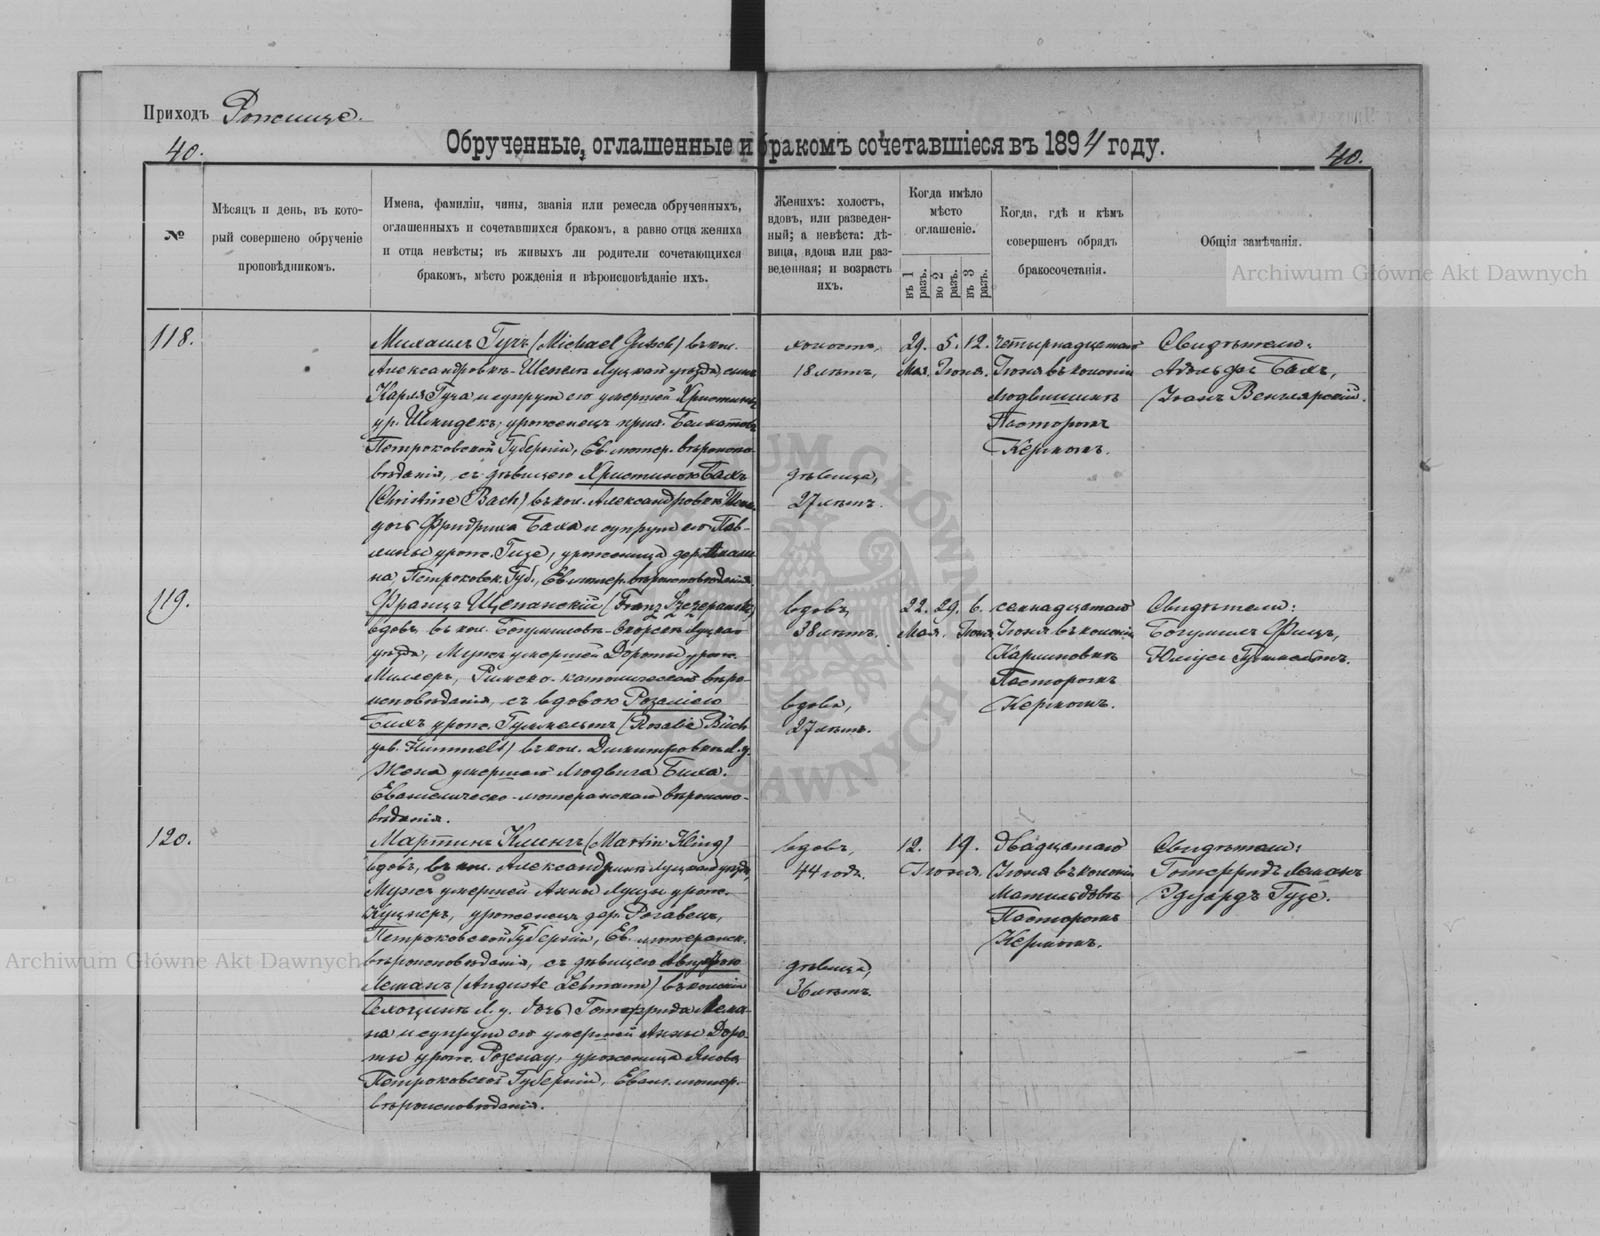 Приходъ Рожище.
40.
Обрученные, оглашенные и бракомъ сочетавшіеся въ 1894 году.
40.
№
Мѣсяцъ и день, въ кото-
рый совершено обрученіе
проповѣдникомъ.
Имена, фамиліи, чины, званія или ремесла обрученныхъ,
оглашенныхъ и сочетавшихся бракомъ, а равно отца жениха
и отца невѣсты; въ живыхъ ли родители сочетающихся
бракомъ, мѣсто рожденія и вѣроисповѣданіе ихъ.
Женихъ: холостъ,
вдовъ, или разведен-
ный; а невѣста: дѣ-
вица, вдова или раз-
веденная; и возрастъ
ихъ.
Когда имѣло
мѣсто
оглашеніе.
въ 1 разъ.
во 2 разъ.
въ 3 разъ.
Когда, гдѣ и кѣмъ
совершенъ обрядъ
бракосочетанія.
Общія замѣчанія.
118.
Михаилъ Гучъ (Michael Gutsch) въ кол.
Александровкѣ-Щепель Луцкаго уѣзда, сынъ
Карла Гуча и супруги его умершей Христины
ур. Шпидекъ, уроженецъ
Петроковской Губерніи, Ев. лютер. вѣроиспо-
вѣданія, съ дѣвицею Христиною Бахъ
(Christine Bach) въ кол. Александровкѣ
дочь Фридриха Баха и супруги его Пав-
лины урож. Гизе, уроженица дер.
на, Петроковск. Губ., Ев. лютер. вѣроисповѣданія.
холостъ,
18 лѣтъ,
дѣвица,
27 лѣтъ.
29. 5. 12.
Мая. Іюня.
Четырнадцатаго
Іюня въ колоніи
Людвишинѣ
Пасторомъ
Кермомъ.
Свидѣтели:
Адольфъ Бахъ,
Іоганъ Венглярскій.
119.
Францъ Щепанскій (Franz Szczepanski)
вдовъ, въ кол. Богумиловкѣ- Луцкаго
уѣзда, Мужъ умершей Дороты урож.
Миллеръ, Римско-католическаго вѣро-
исповѣданія, съ вдовою Розаліею
Бихъ урож. Гуммельтъ (Rosalie Büch
geb. Hummelt) въ кол. Дмитровкѣ Л. у.
Жена умершаго Людвига Биха.
Евангелическо-лютеранскаго вѣроиспо-
вѣданія.
вдовъ,
38 лѣтъ.
вдова,
27 лѣтъ.
22. 29. 6.
Мая. Іюня
семнадцатаго
Іюня въ колоніи
Карлиновкѣ
Пасторомъ
Кермомъ.
Свидѣтели:
Богумилъ Фицъ,
Юліусъ Гуммельтъ.
120.
Мартинъ Клингъ (Martin Kling)
вдовъ, въ кол. Луцкаго уѣзда,
Мужъ умершей Анны Луизы урож.
Куцнеръ, уроженецъ дер. Рогавецъ,
Петроковской Губерніи, Ев. лютеранск.
вѣроисповѣданія, съ дѣвицею Августою
Леманъ (Auguste Lehmann) въ колоніи
Л. у. дочь Готфрида Лема-
на и супруги его умершей Анны Доро-
ты урож. Розенау, уроженица Янова
Петроковской Губерніи, Еванг. лютер.
вѣроисповѣданія.
вдовъ,
44 года.
дѣвица,
36 лѣтъ.
12. 19.
Іюня.
двадцатаго
Іюня въ колоніи
Матильдовкѣ
Пасторомъ
Кермомъ.
Свидѣтели:
Готфридъ Леманъ
Эдуардъ Гузе.
Archiwum Główne Akt Dawnych
Archiwum Główne Akt Dawnych